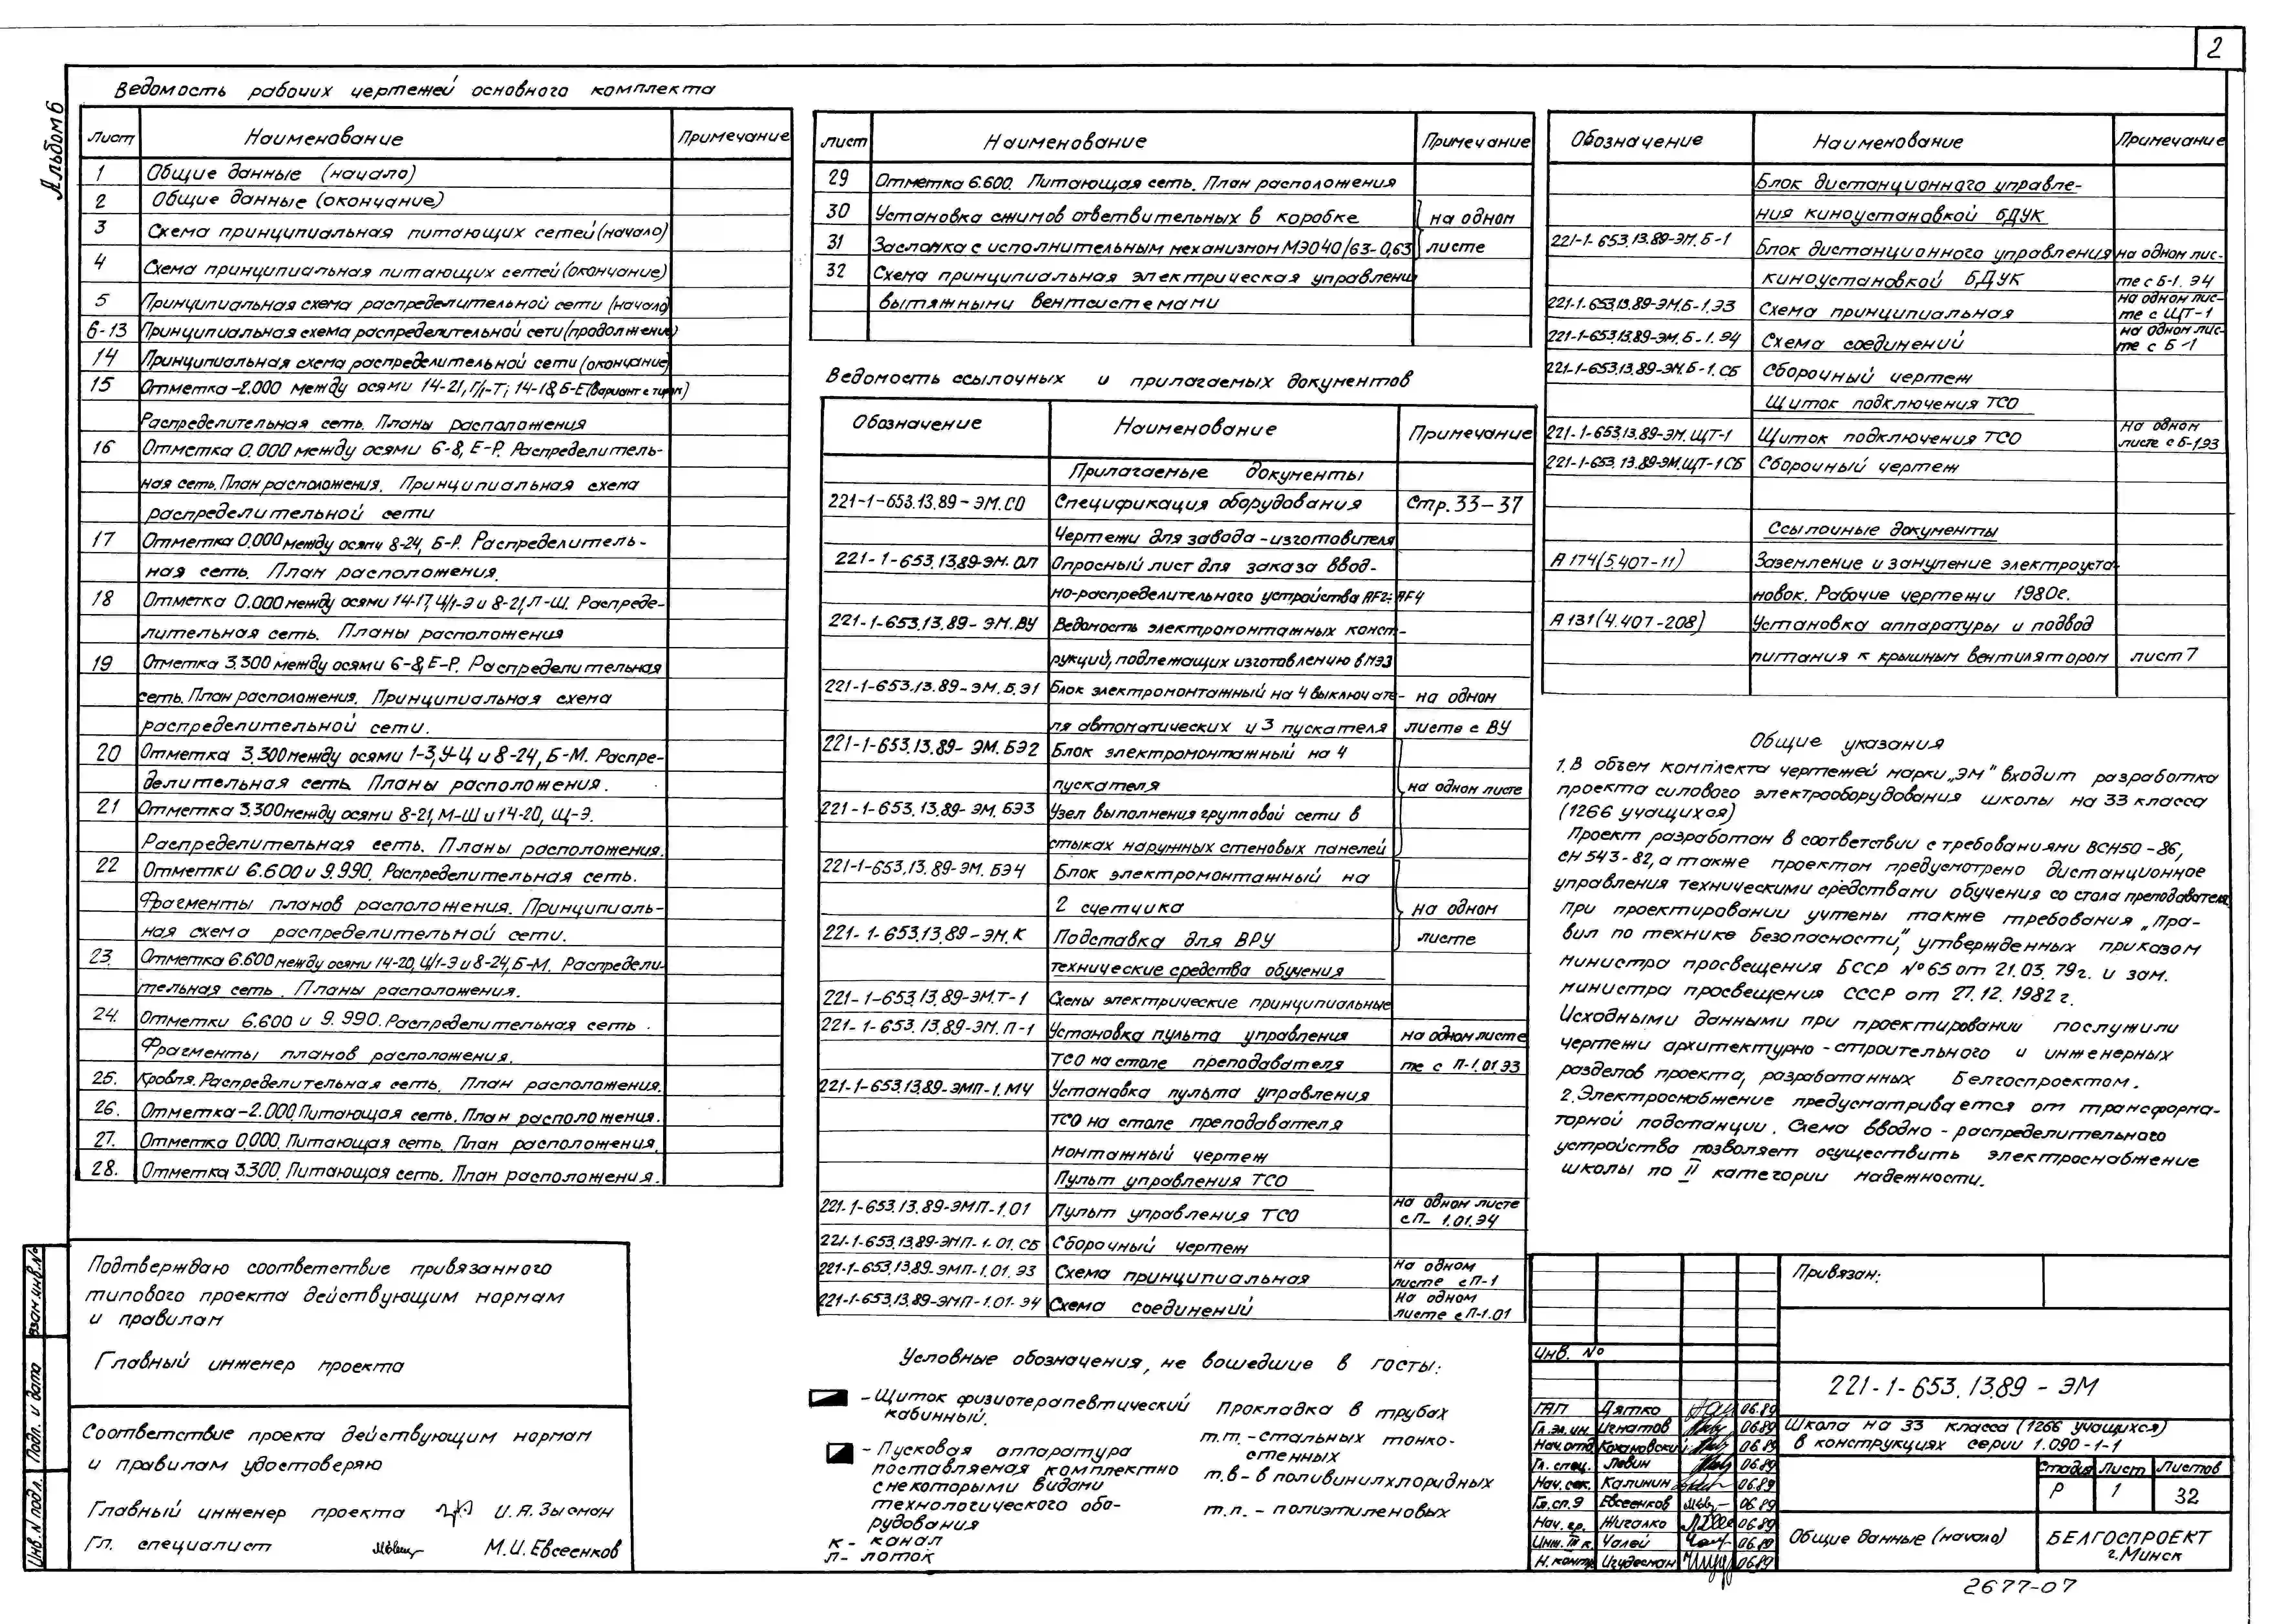 2
Альбом 6
Ведомость рабочих чертежей основного комплекта
Лист Наименование Примечание
1 Общие данные (начало)
2 Общие данные (окончание)
3 Схема принципиальная питающих сетей (начало)
4 Схема принципиальная питающих сетей (окончание)
5 Принципиальная схема распределительной сети (начало)
6-13 Принципиальная схема распределительной сети (продолжение)
14 Принципиальная схема распределительной сети (окончание)
15 Отметка -2.000 между осями 14-21, Г/1-Т; 14-18, Б-Е (Вариант с тиром)
Распределительная сеть. Планы расположения
16 Отметка 0.000 между осями 6-8, Е-Р. Распределитель-
ная сеть. План расположения. Принципиальная схема
распределительной сети
17 Отметка 0.000 между осями 8-24, Б-Р. Распределитель-
ная сеть. План расположения.
18 Отметка 0.000 между осями 14-17, Ц/1-Э и 8-21, Л-Ш. Распреде-
лительная сеть. Планы расположения
19 Отметка 3.300 между осями 6-8, Е-Р. Распределительная
сеть. План расположения. Принципиальная схема
распределительной сети.
20 Отметка 3.300 между осями 1-3, У-Ц и 8-24, Б-М. Распре-
делительная сеть. Планы расположения.
21 Отметка 3.300 между осями 8-21, М-Ш и 14-20, Щ-Э.
Распределительная сеть. Планы расположения.
22 Отметки 6.600 и 9.990. Распределительная сеть.
Фрагменты планов расположения. Принципиаль-
ная схема распределительной сети.
23. Отметка 6.600 между осями 14-20, Ц/1-Э и 8-24, Б-М. Распредели-
тельная сеть. Планы расположения.
24. Отметки 6.600 и 9.990. Распределительная сеть.
Фрагменты планов расположения.
25. Кровля. Распределительная сеть. План расположения.
26. Отметка -2.000 Питающая сеть. План расположения.
27. Отметка 0.000. Питающая сеть. План расположения.
28. Отметка 3.300. Питающая сеть. План расположения.
Подтверждаю соответствие привязанного
типового проекта действующим нормам
и правилам
Главный инженер проекта
Соответствие проекта действующим нормам
и правилам удостоверяю
Главный инженер проекта И.А. Зысман
Гл. специалист М.И. Евсеенков
Взам. инв. №
Подп. и дата
Инв. № подл.
лист Наименование Примечание
29 Отметка 6.600. Питающая сеть. План расположения
30 Установка сжимов ответвительных в коробке на одном
31 Заслонка с исполнительным механизмом МЭО 40/63-0,63 листе
32 Схема принципиальная электрическая управлени
вытяжными вентсистемами
Ведомость ссылочных и прилагаемых документов
Обозначение Наименование Примечание
Прилагаемые документы
221-1-653.13.89-ЭМ.СО Спецификация оборудования Стр. 33-37
Чертежи для завода-изготовителя
221-1-653.13.89-ЭМ.ОЛ Опросный лист для заказа ввод-
но-распределительного устройства ЯF2; ЯF4
221-1-653.13.89-ЭМ.ВУ Ведомость электромонтажных конст-
рукций, подлежащих изготовлению в МЭЗ
221-1-653.13.89-ЭМ.БЭ1 Блок электромонтажный на 4 выключате- на одном
ля автоматических и 3 пускателя листе с ВУ
221-1-653.13.89-ЭМ.БЭ2 Блок электромонтажный на 4
пускателя на одном листе
221-1-653.13.89-ЭМ.БЭ3 Узел выполнения групповой сети в
стыках наружных стеновых панелей
221-1-653.13.89-ЭМ.БЭ4 Блок электромонтажный на
2 счетчика на одном
221-1-653.13.89-ЭМ.К Подставка для ВРУ листе
технические средства обучения
221-1-653.13.89-ЭМ.Т-1 Схемы электрические принципиальные
221-1-653.13.89-ЭМ.П-1 Установка пульта управления на одном листе
ТСО на столе преподавателя те с П-1.01.Э3
221-1-653.13.89-ЭМП-1.МЧ Установка пульта управления
ТСО на столе преподавателя
монтажный чертеж
Пульт управления ТСО
221-1-653.13.89-ЭМП-1.01 Пульт управления ТСО на одном листе
с П-1.01.Э4
221-1-653.13.89-ЭМП-1.01.СБ Сборочный чертеж
221-1-653.13.89-ЭМП-1.01.Э3 Схема принципиальная на одном
листе с П-1
221-1-653.13.89-ЭМП-1.01.Э4 Схема соединений на одном
листе с П-1.01
Условные обозначения, не вошедшие в госты:
- Щиток физиотерапевтический
кабинный.
- Пусковая аппаратура
поставляемая комплектно
с некоторыми видами
технологического обо-
рудования
к - канал
л - лоток
прокладка в трубах
т.т. - стальных тонко-
стенных
т.в - в поливинилхлоридных
т.п. - полиэтиленовых
Обозначение Наименование Примечание
Блок дистанционного управле-
ния киноустановкой БДУК
221-1-653.13.89-ЭМ.Б-1 Блок дистанционного управления на одном лис-
киноустановкой БДУК те с Б-1.Э4
221-1-653.13.89-ЭМ.Б-1.Э3 Схема принципиальная на одном лис-
те с ЩТ-1
221-1-653.13.89-ЭМ.Б-1.Э4 Схема соединений на одном лис-
те с Б-1
221-1-653.13.89-ЭМ.Б-1.СБ Сборочный чертеж
Щиток подключения ТСО
221-1-653.13.89-ЭМ.ЩТ-1 Щиток подключения ТСО на одном
листе с Б-1.Э3
221-1-653.13.89-ЭМ.ЩТ-1СБ Сборочный чертеж
Ссылочные документы
А174(5.407-11) Заземление и зануление электроуста-
новок. Рабочие чертежи 1980г.
А131(4.407-208) Установка аппаратуры и подвод
питания к крышным вентиляторам лист 7
Общие указания
1. В объем комплекта чертежей марки „ЭМ" входит разработка
проекта силового электрооборудования школы на 33 класса
(1266 учащихся)
Проект разработан в соответствии с требованиями ВСН50-86,
СН 543-82, а также проектом предусмотрено дистанционное
управления техническими средствами обучения со стола преподавателя
При проектировании учтены также требования „Пра-
вил по технике безопасности", утвержденных приказом
министра просвещения БССР №65 от 21.03.79г. и зам.
министра просвещения СССР от 27.12.1982г.
Исходными данными при проектировании послужили
чертежи архитектурно-строительного и инженерных
разделов проекта, разработанных Белгоспроектом.
2. Электроснабжение предусматривается от трансформа-
торной подстанции. Схема вводно-распределительного
устройства позволяет осуществить электроснабжение
школы по II категории надежности.
Привязан:
Инв. №
221-1-653.13.89 - ЭМ
ГАП Дятко 06.89
Гл. эл. ин. Игнатов 06.89
Нач. отд. Кохановский 06.89
Гл. спец. Левин 06.89
Нач. сек. Калинин 06.89
Гл. сп. Э Евсеенков 06.89
Нач. гр. Жигалко 06.89
Инж. III к. Чалей 06.89
Н. контр. Изудесман 06.89
Школа на 33 класса (1266 учащихся)
в конструкциях серии 1.090-1-1
Стадия Лист Листов
Р 1 32
Общие данные (начало)
БЕЛГОСПРОЕКТ
г. Минск
2677-07